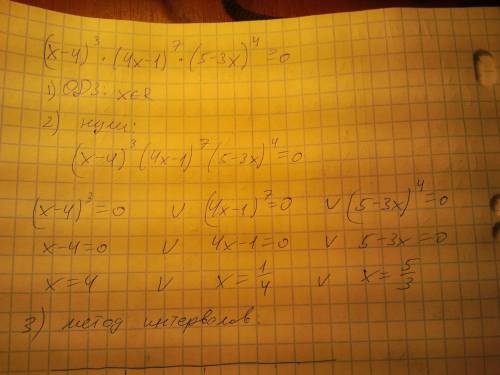 (x-4)³ · (4x-1)⁷ · (5-3x)⁴=0
1) ОДЗ: x∈R
2) нули:
(x-4)³ (4x-1)⁷ (5-3x)⁴=0
(x-4)³=0 ∨ (4x-1)⁷=0 ∨ (5-3x)⁴=0
x-4=0 ∨ 4x-1=0 ∨ 5-3x=0
x=4 ∨ x=1/4 ∨ x=5/3
3) метод интервалов.